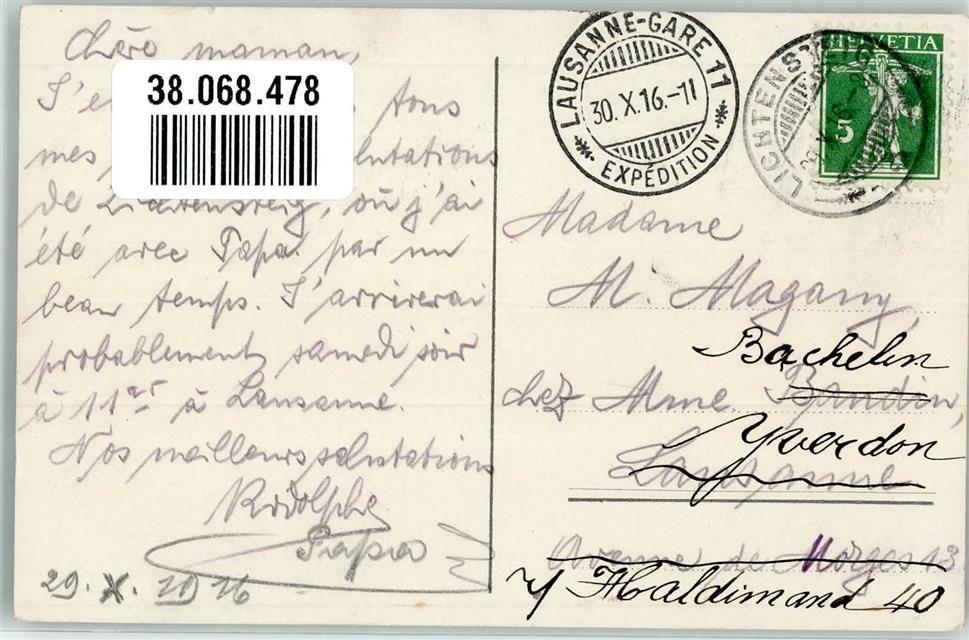 Chère maman,
38.068.478
J'e tous
mes ntations
de Lichtensteig, où j'ai
été avec Papa par un
beau temps. J'arriverai
probablement samedi soir
à 11 à Lausanne.
Nos meilleurs salutations
Rodolphe
Papa
29. X. 1916
LAUSANNE-GARE 11
30. X. 16.-11
EXPÉDITION
LICHTENSTEIG
HELVETIA
5
Madame
M. Magany,
Bachelin
chez Mme. Baudin,
Yverdon
Lausanne
Avenue de Morges 13
Haldimand 40